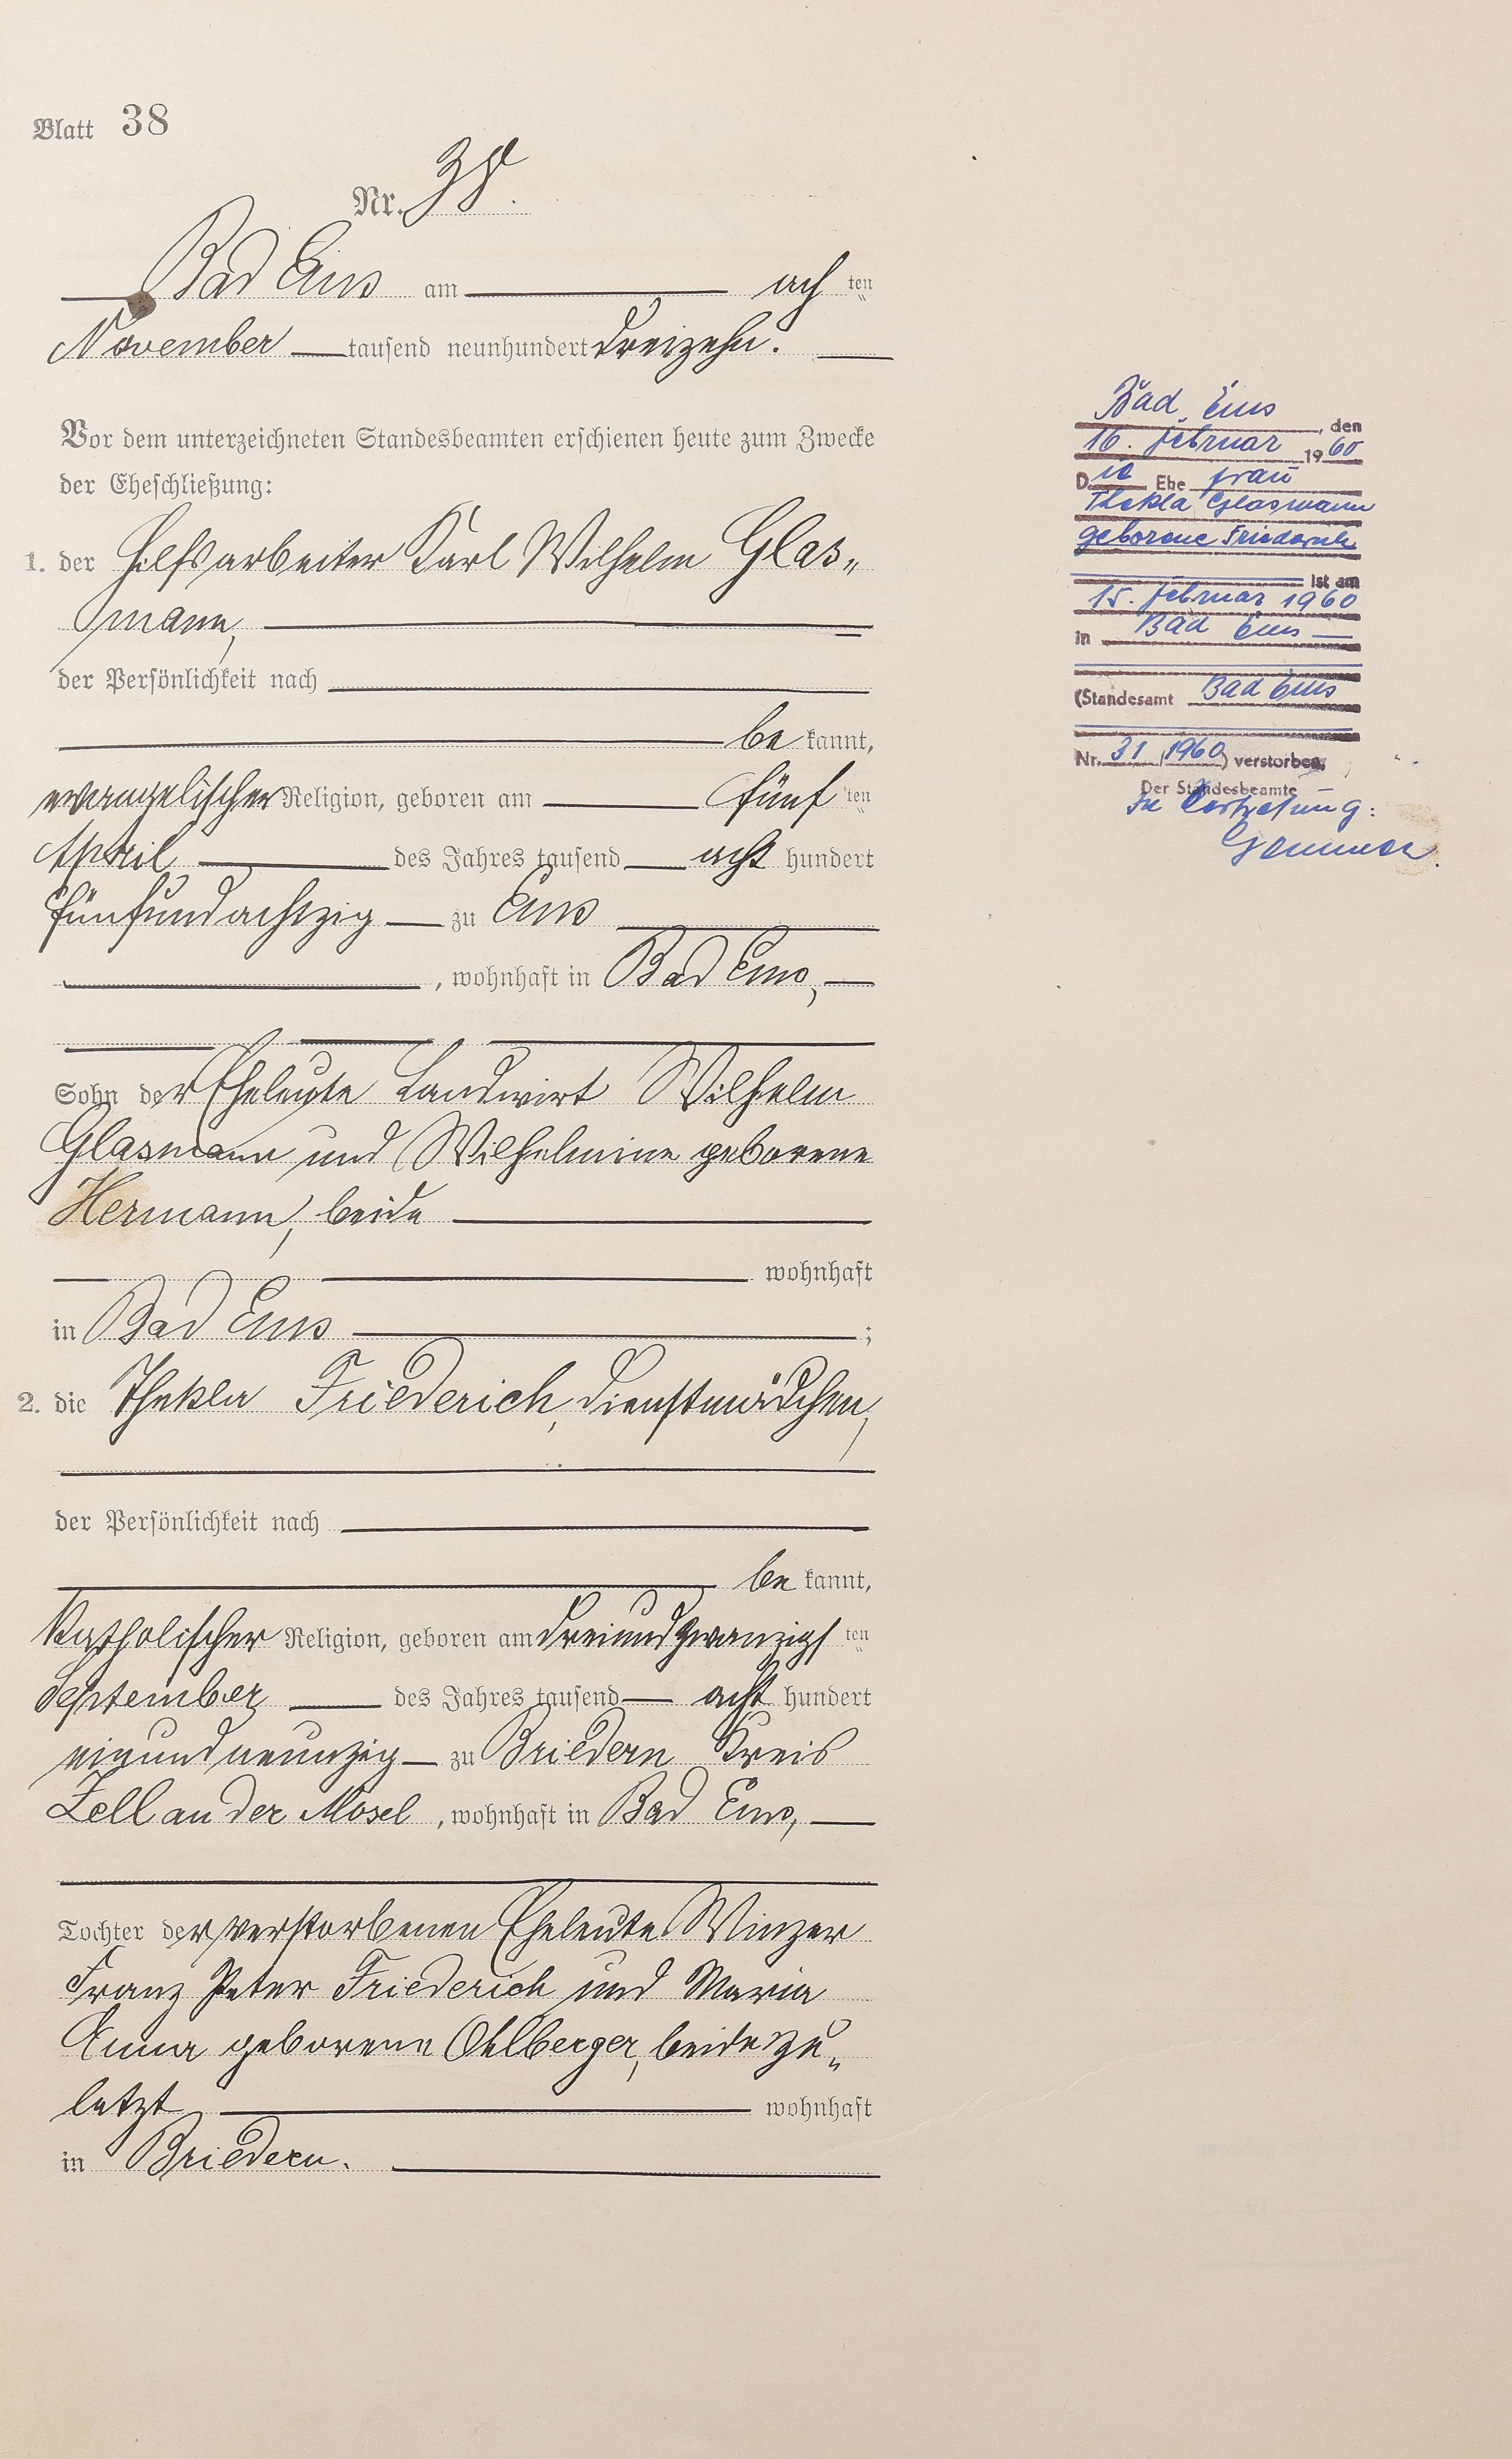 Blatt 38
Nr. 38.
Bad Ems am ach ten
November tausend neunhundert dreizehn.
Vor dem unterzeichneten Standesbeamten erschienen heute zum Zwecke
der Eheschließung:
1. der Hilfsarbeiter Karl Wilhelm Glas„
mann,
der Persönlichkeit nach
be kannt,
evangelischer Religion, geboren am fünf ten
April des Jahres tausend acht hundert
fünfundachtzig zu Ems
, wohnhaft in Bad Ems,
Sohn der Eheleute Landwirt Wilhelm
Glasmann und Wilhelmine geborene
Hermann, beide
wohnhaft
in Bad Ems ;
2. die Thekla Friederich, Dienstmädchen,
der Persönlichkeit nach
be kannt,
katholischer Religion, geboren am dreiundzwanzigs ten
September des Jahres tausend acht hundert
einundneunzig zu Briedern Kreis
Zell an der Mosel , wohnhaft in Bad Ems,
Tochter der verstorbenen Eheleute Winzer
Franz Peter Friederich und Maria
Anna geborene Ohlberger, beide zu„
letzt wohnhaft
in Briedern.
Bad Ems , den
16. Februar 19 60
D ie Ehe frau
Thekla Glasmann
geborene Friederich
ist am
15. Februar 1960
in Bad Ems
(Standesamt Bad Ems
Nr. 31 / 1960 ) verstorben.
Der Standesbeamte
In Vertretung: